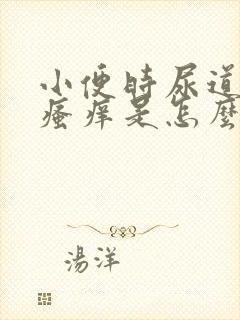 小便時尿道
瘙癢是怎麼
湯洋